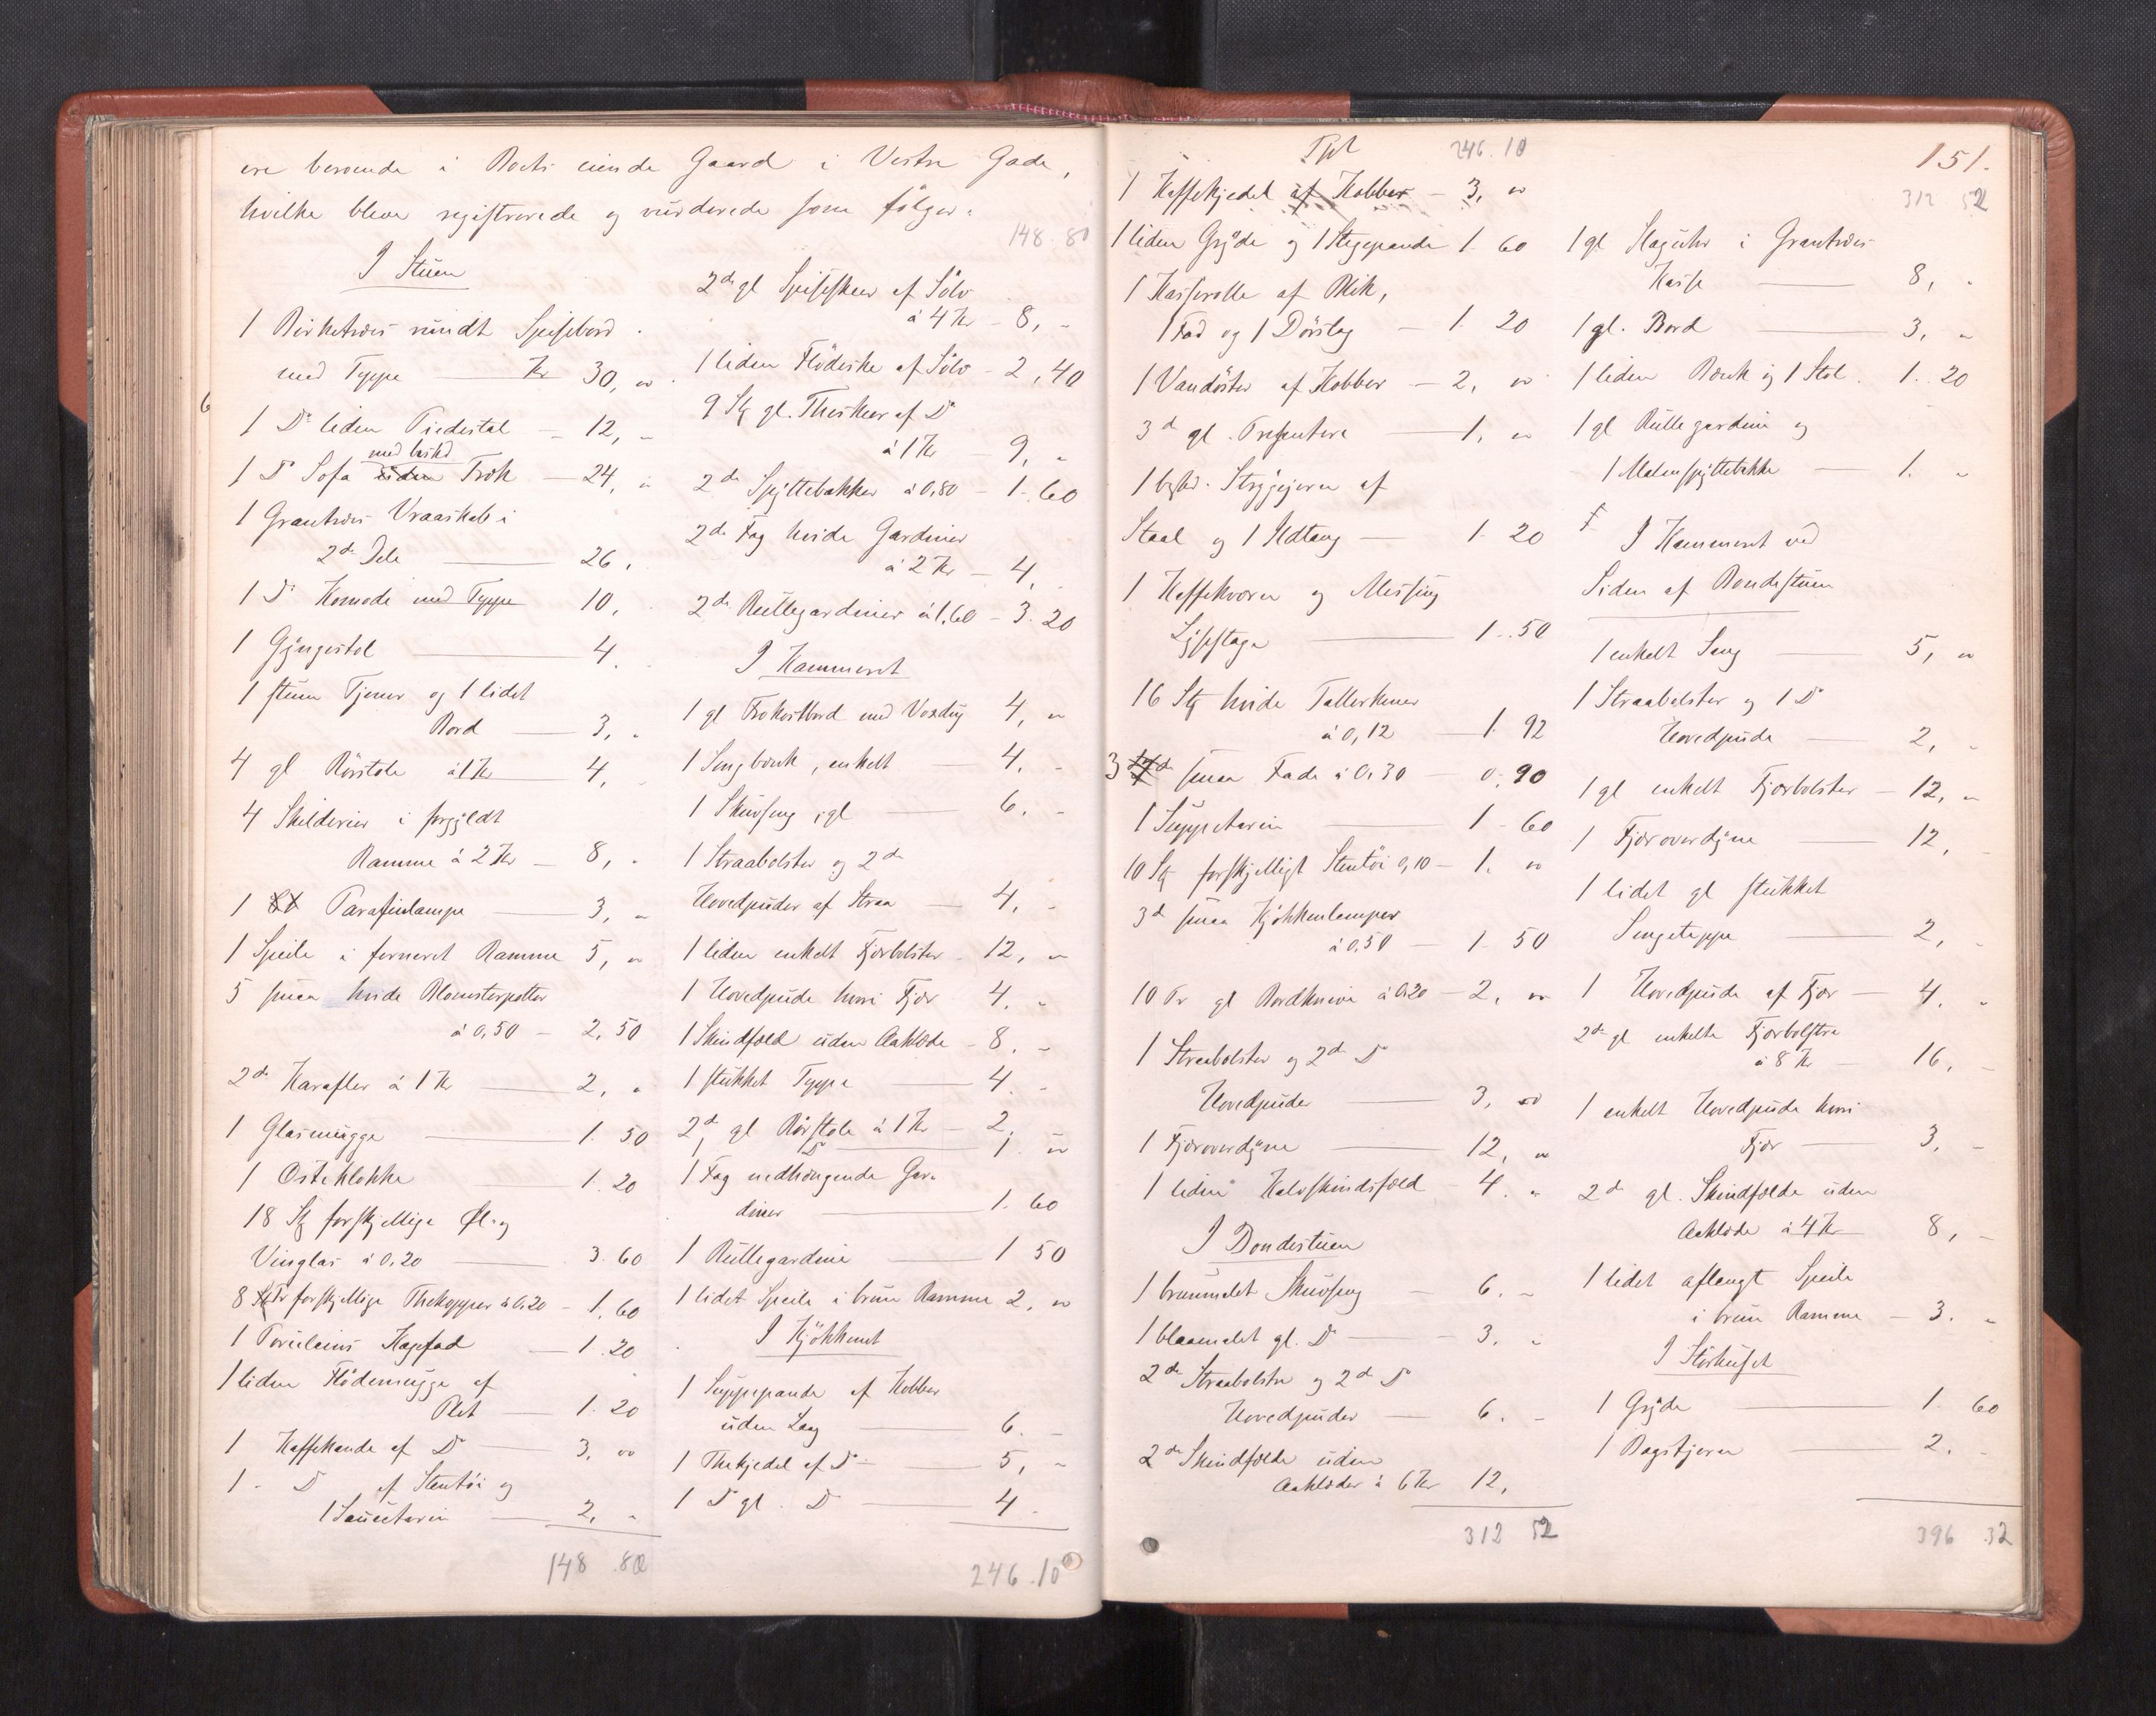 ere beroende i Boets eiende Gaard i Vestre Gade,
hvilke bleve registrerede og vurderede som følger:
148.80
I Stuen
1 Birketræes rundt Spisebord
med Tæppe — Kr 30, "
1 Do liden Piedestal — 12, "
med beskd
1 Do Sofa uden Træk — 24, "
1 Grantræes Vraaskab i
2de Dele — 26,
1 Do Komode med Tæppe 10,
1 Gyngestol — 4.
1 stum Tjener og 1 lidet
Bord — 3, "
4 gl Rørstole à 1 Kr — 4,
4 Skilderier i forgyldt
Ramme à 2 Kr — 8, "
1 Parafinlampe — 3, "
1 Speile i forneret Ramme 5, "
5 smaa hvide Blomsterpotter
à 0,50 — 2,50
2de Karafler à 1 Kr — 2, "
1 Glasmugge — 1.50
1 Osteklokke — 1.20
18 St forskjellige Øl- og
Vinglas à 0.20 — 3.60
8 Pr forskjellige Thekopper à 0.20 — 1.60
1 Porcelains Kagefad — 1.20
1 liden Flødemugge af
Plet — 1.20
1 Kaffekande af Do — 3, "
1 - Do af Stentøi og
1 Saucetarin — 2, "
148.80
2de gl Spiseskeer af Sølv
à 4 Kr — 8, "
1 liden Flødeske af Sølv — 2,40
9 St gl. Theskeer af Do
à 1 Kr 9, "
2de Spyttebakker à 0,80 — 1.60
2de Fag hvide Gardiner
à 2 Kr — 4,
2de Rullegardiner à 1.60 — 3.20
I Kammeret
1 gl Frokostbord med Voxdug 4, "
1 Sengbænk, enkelt — 4, "
1 Skuvseng, gl — 6. "
1 Straabolster og 2de
Hovedpuder af Straa — 4, "
1 liden enkelt Fjærbolster — 12, "
1 Hovedpude hvori Fjær 4. "
1 Skindfæld uden Aaklæde — 8. "
1 stukket Tæppe — 4. "
2de gl Rørstole à 1 Kr — 2.
1 Do — 1. "
1 Fag nedhængende Gar-
diner — 1.60
1 Rullegardine — 1 50
1 lidet Speile i brun Ramme 2, "
I Kjøkkenet
1 Suppepande af Kobber
uden Laag — 6. "
1 Thekjedel af Do — 5, "
1 Do gl. Do — 4
246.10
151.
Tpt 246.10
1 Kaffekjedel af Kobber — 3, "
1 liden Gryde og 1 Stegepande 1.60
1 Kasserolle af Blik,
1 Fad og 1 Dørslag — 1.20
1 Vandøster af Kobber — 2, "
3d gl. Presentere — 1, "
1 beskd. Strygejern af
Staal og 1 Ildtang — 1.20
1 Kaffekværn og Messing
Lysestage — 1.50
16 St hvide Tallerkener
à 0,12 — 1.92
3 smaa Fade à 0.30 — 0.90
1 Suppetarin — 1.60
10 St forskjelligt Stentøi 0,10 — 1. "
3d smaa Kjøkkenlamper
à 0.50 — 1.50
10 Pr gl Bordknive à 0.20 — 2, "
1 Straabolster og 2de Do
Hovedpuder — 3, "
1 Fjæroverdyne — 12, "
1 liden Kalvskindsfæld 4. "
I Bondestuen
1 brunmalet Skuvseng — 6. "
1 blaamalet gl. Do — 3. "
2de Straabolstre og 2de Do
Hovedpuder — 6. "
2de Skindfælde uden
Aaklæder à 6 Kr 12,
312 52
312 52
1 gl Slaguhr i Grantræes
Kasse — 8, "
1 gl. Bord — 3, "
1 liden Bænk og 1 Stol. 1.20
1 gl Rullegardin og
1 Malmspyttebakke — 1. "
I Kammeret ved
Siden af Bondestuen
1 enkelt Seng — 5, "
1 Straabolster og 1 Do
Hovedpude — 2, "
1 gl enkelt Fjærbolster — 12, "
1 Fjæroverdyne — 12, "
1 lidet gl stukket
Sengetæppe — 2, "
1 Hovedpude af Fjær — 4. "
2de gl enkelte Fjærbolstre
à 8 Kr — 16, "
1 enkelt Hovedpude hvori
Fjær — 3, "
2de gl. Skindfælde uden
Aaklæde à 4 Kr 8, "
1 lidet aflangt Speile
i brun Ramme — 3. "
I Størhuset
1 Gryde — 1.60
1 Bagstjern — 2. "
396.32